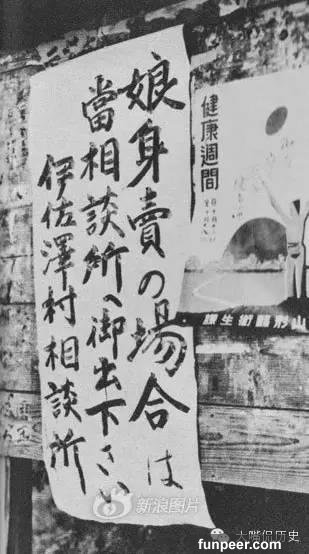 娘身賣の場合は
當相談所へ御出下さい
伊佐澤村相談所
健康週間
山形縣衛生課
新浪图片
大嘴侃历史
funpeer.com